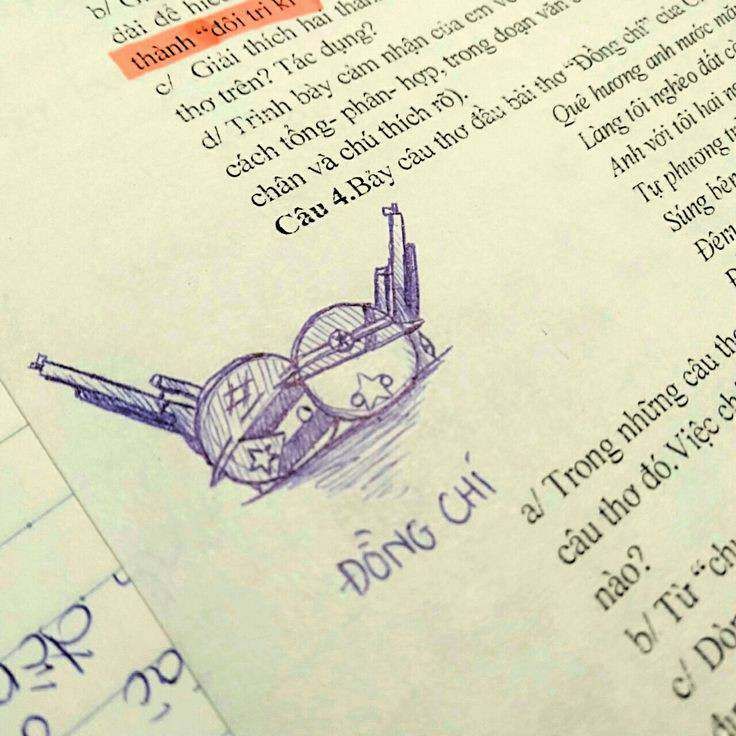 b/
dài để hiểu
thành "đôi tri kỉ
c/ Giải thích hai thành
thơ trên? Tác dụng?
d/ Trình bày cảm nhận của em về
cách tổng- phân- hợp, trong đoạn văn
chân và chú thích rõ).
Câu 4.Bảy câu thơ đầu bài thơ "Đồng chí" của
Quê hương anh nước mặn
Làng tôi nghèo đất cày
Anh với tôi hai người
Tự phương trời
Súng bên
Đêm
#
ĐỒNG CHÍ
a/ Trong những câu thơ
câu thơ đó.Việc
nào?
b/ Từ "chung
c/ Dòng